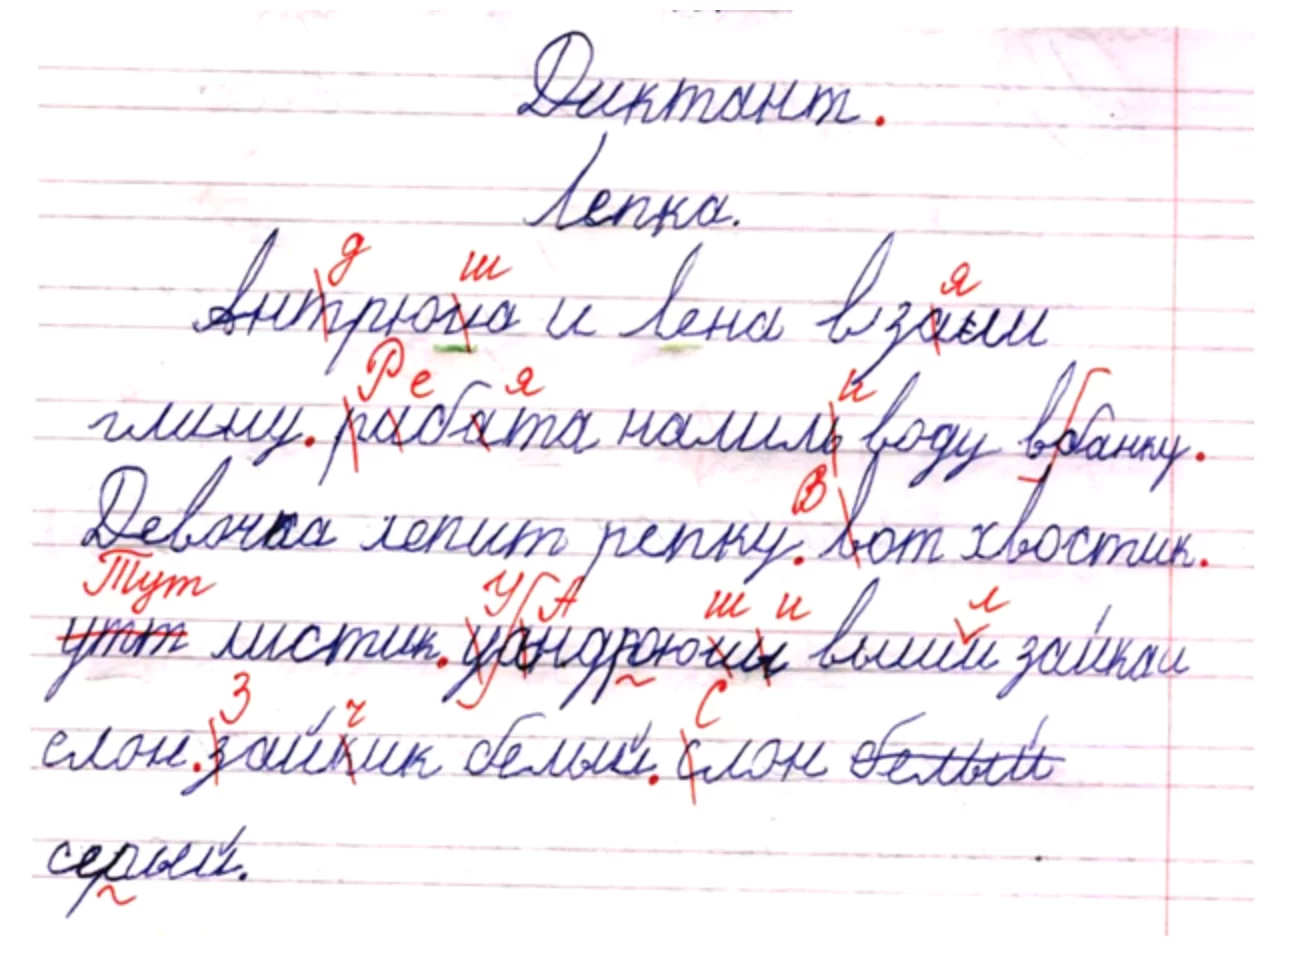 Диктант.
Лепка.
д ш я
Антрюиа и Лена взали
Р е я и
глину. рабата налиль воду вбанку.
В
Девочка лепит репку. вот хвостик.
Тут У А ш и л
утт листик. уандрюии выший зайкаи
З ч С
слон. зайкик белый. слон белый
серый.